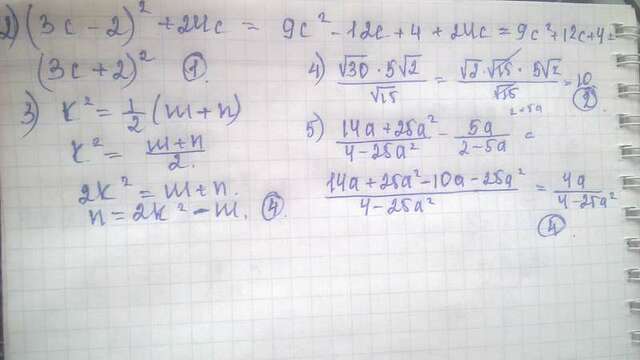 2) (3c - 2)² + 24c = 9c² - 12c + 4 + 24c = 9c² + 12c + 4 =
(3c + 2)² ①
3) k² = 1/2 (m + n)
k² = (m + n)/2.
2k² = m + n.
n = 2k² - m. ④.
4) (√30 · 5√2)/√15 = (√2 · √15 · 5√2)/√15 = 10 ②
5) (14a + 25a²)/(4 - 25a²) - 5a/(2 - 5a) ^(2+5a) =
(14a + 25a² - 10a - 25a²)/(4 - 25a²) = 4a/(4 - 25a²)
④